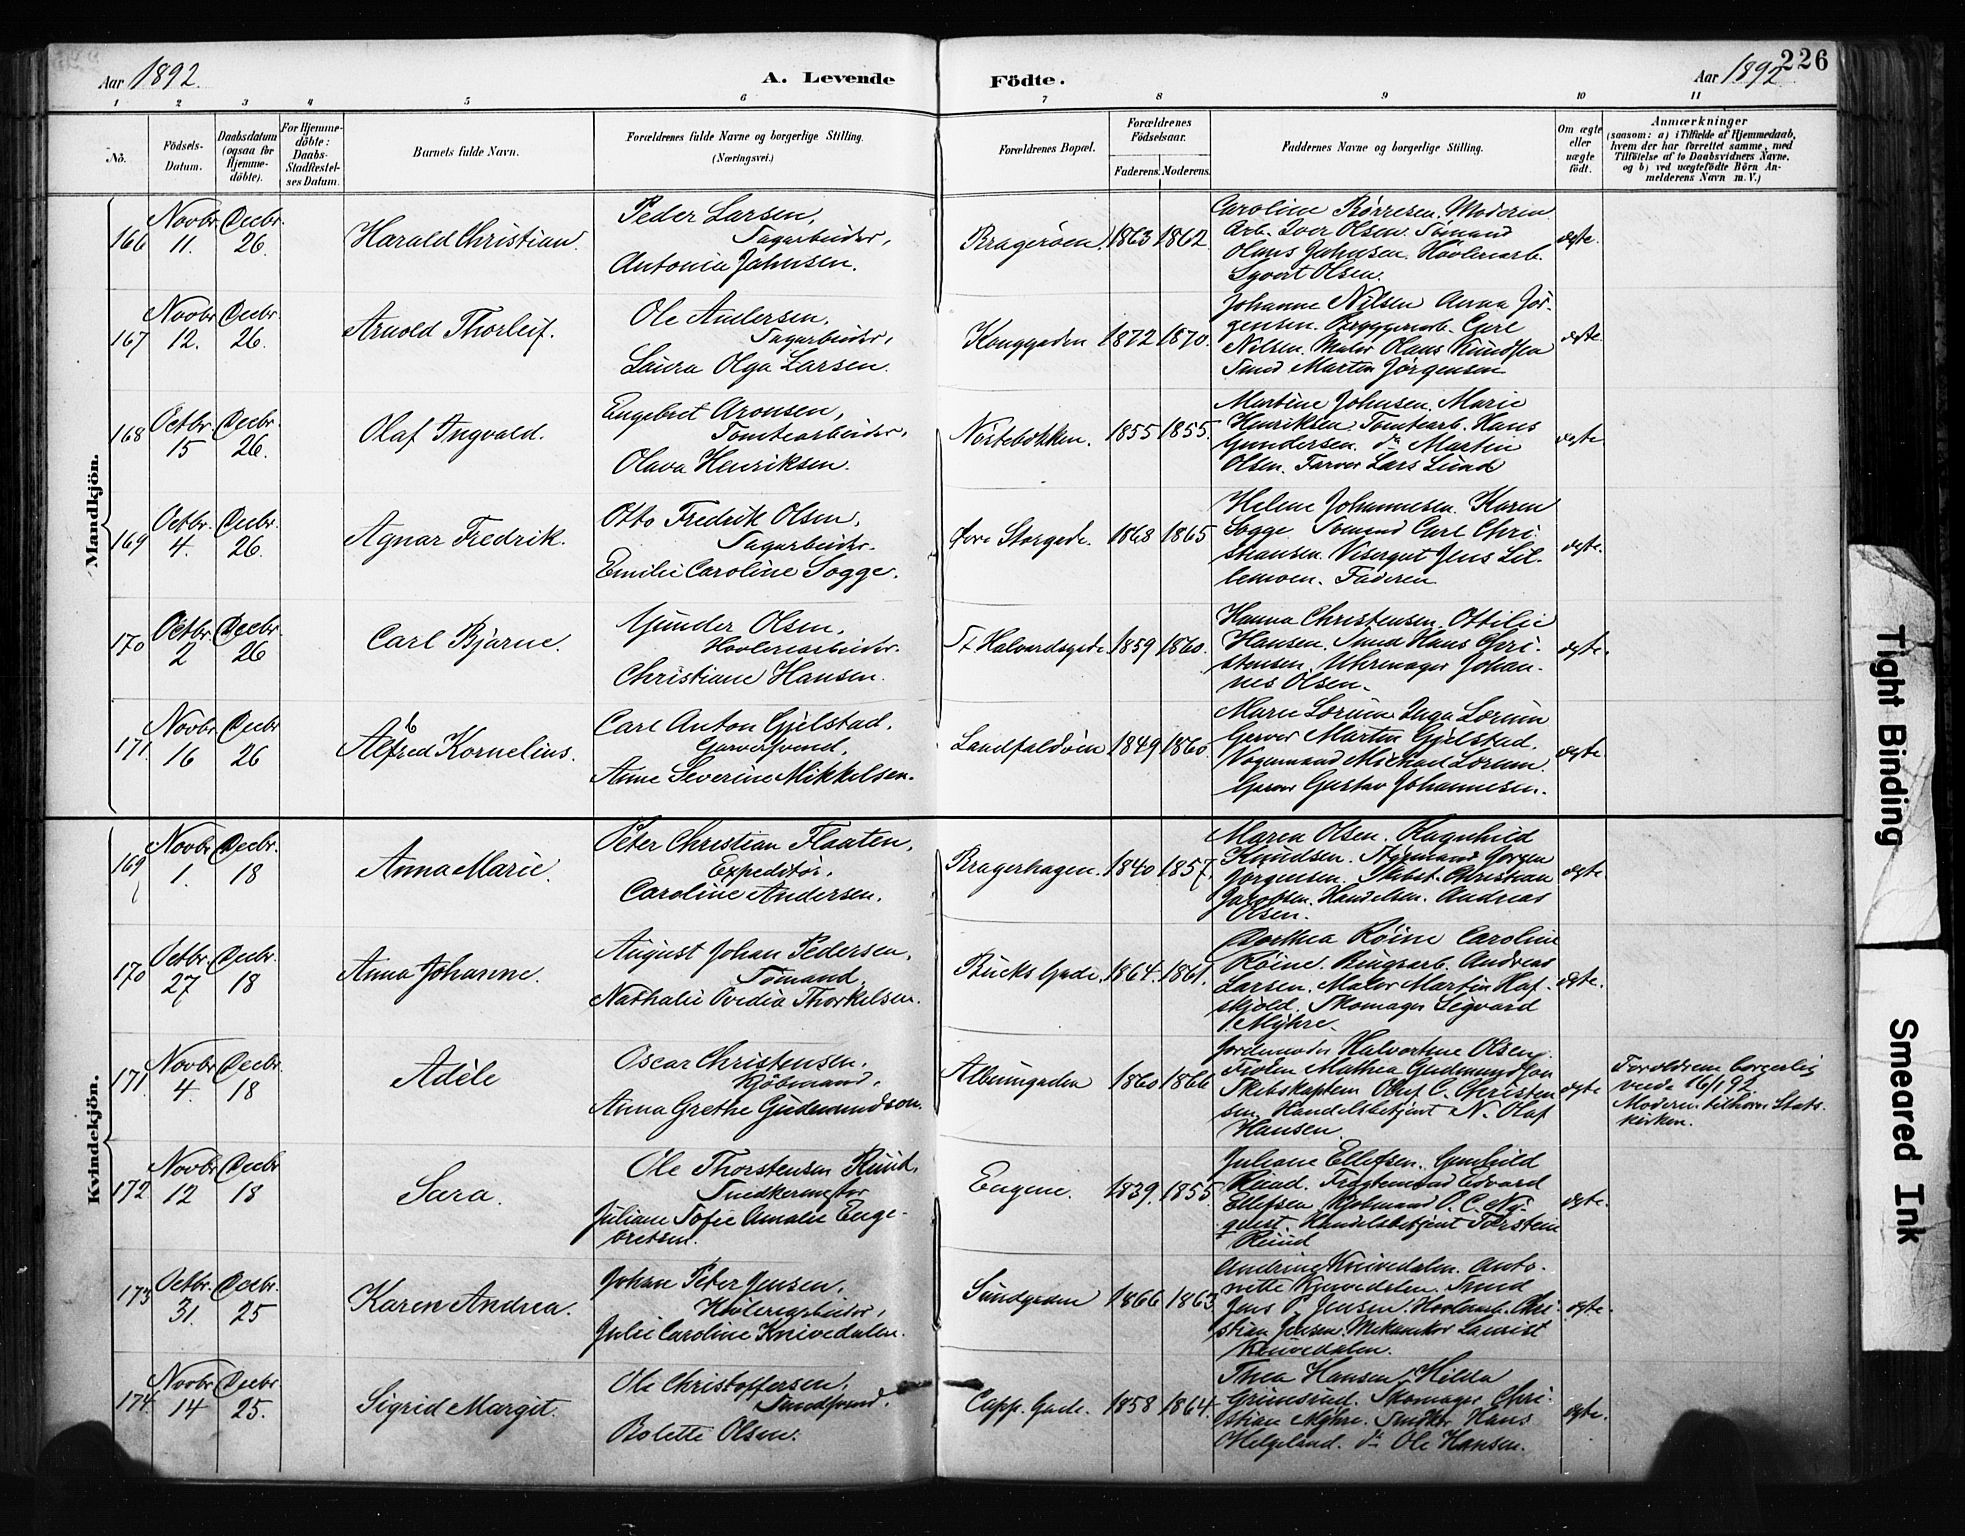 Aar 1892.
A. Levende Födte.
Aar 1892.
226
1 2 3 4 5 6 7 8 9 10 11
No.
Födsels-Datum.
Daabsdatum (ogsaa for Hjemme-döbte).
For Hjemme-döbte: Daabs-Stadfæstel-ses Datum.
Barnets fulde Navn.
Forældrenes fulde Navne og borgerlige Stilling. (Næringsvei.)
Forældrenes Bopæl.
Forældrenes Födselsaar.
Faderens. Moderens.
Faddernes Navne og borgerlige Stilling.
Om ægte eller uægte födt.
Anmærkninger
(saasom: a) i Tilfælde af Hjemmedaab,
hvem der har forrettet samme, med
Tilföielse af to Daabsvidners Navne,
og b) ved uægtefödte Börn An-
melderens Navn m. V.)
Mandkjön.
166 Novbr. 11. Decbr. 26.
Harald Christian.
Peder Larsen,
Sagarbeider,
Antonia Jahnsen.
Bragerøen. 1863 1862
Caroline Børresen. Moderen
Arb. Iver Olsen. Sömand
Olaus Jahnsen. Høvleriarb.
Syvert Olsen.
ægte.
167 Novbr. 12. Decbr. 26.
Arnold Thorleif.
Ole Andersen,
Sagarbeider,
Laura Olga Larsen.
Konggaden 1872 1870.
Johanne Nilsen Anna Jör-
gensen. Bryggeriarb. Carl
Nilsen. Maler Olaus Knudsen
Smed Martin Jørgensen
ægte.
168 Octbr. 15 Decbr. 26.
Olaf Ingvald.
Engebret Aronsen,
Tomtearbeider,
Olava Henriksen.
Nöstebakken. 1855 1855.
Martine Johnsen. Marie
Henriksen. Tomtearb. Hans
Gundersen. do Martin
Olsen. Farver Lars Lund
ægte
169 Octbr. 4. Decbr. 26.
Agnar Fredrik.
Otto Fredrik Olsen,
Sagarbeider.
Emilie Caroline Sogge.
Øvre Storgade. 1868 1865
Helene Johannesen. Karen
Sogge Sömand Carl Chri-
stiansen. Visergut Jens Lil-
lemoen. Faderen
ægte.
170 Octbr. 2 Decbr. 26
Carl Bjarne.
Gunder Olsen,
Høvleriarbeider.
Christiane Hansen.
St Halvardsgade 1859 1860.
Hanna Christensen. Ottilie
Hansen. Smed Hans Chri-
stensen. Uhrmager Johan-
nes Olsen.
ægte.
171. Novbr. 16 Decbr 26
Alfred Kornelius.
Carl Anton Gjelstad.
Garversvend,
Anne Severine Mikkelsen.
Landfaldöen 1849 1860.
Marie Lorum Inga Lorum
Garver Martin Gjelstad.
Vognmand Michael Lorum.
Garver Gustav Johannesen.
ægte.
Kvindekjön.
169 Novbr. 1. Decbr. 18
Anna Marie.
Peter Christian Flaaten,
Expeditör.
Caroline Andersen.
Bragerhagen. 1840 1857.
Maren Olsen. Ragnhild
Knudsen. Styrmand Jörgen
Jørgensen. Skibst. Christian
Jacobsen. Handelsm. Andreas
Olsen.
ægte
170 Octbr. 27 Decbr. 18
Anna Johanne.
August Johan Pedersen,
Sömand.
Nathalie Ovidia Thorkelsen.
Bucks Gade. 1864. 1861.
Dorthea Röine Caroline
Röine. Brugsarb. Andreas
Larsen. Maler Martin Haf-
skjold. Skomager Sigvard
Myhre.
ægte.
171. Novbr. 4. Decbr. 18
Adèle
Oscar Christensen.
Kjöbmand,
Anna Grethe Gudmundson.
Albumgaden 1860 1866
Jordemoder Halvortine Olsen.
Frøken Mathea Gudmundson
Skibskaptein Oluf C. Christen
sen Handelsbetjent N. Olaf
Hansen
ægte
Foreldrene borgerlig
viede 16/1 92
Moderen tilhører Stats-
kirken.
172 Novbr 12 Decbr 18
Sara.
Ole Thorstensen Ruud,
Snedkermester
Juliane Sofie Amalie Enge-
bretsen.
Engene. 1839. 1855
Juliane Ellefsen. Gunhild
Ruud. Fragtemand Edvard
Ellefsen Kjøbmand O. C. Ny-
quist. Handelsbetjent Torsten
Ruud
ægte.
173 Octbr. 31. Decbr. 25
Karen Andrea.
Johan Peter Jensen,
Høvleriarbeider,
Julie Caroline Knivedalen.
Sundgaden 1866 1863
Andrine Knivedalen. Anto-
nette Knivedalen. Smed
Jens P. Jensen. Høvleriarb. Chri-
stian Jensen. Mekaniker Laurist
Knivedalen.
ægte.
174. Novbr 14 Decbr 25.
Sigrid Margit.
Ole Christoffersen,
Smedsvend.
Bolette Olsen.
Capp. Gade. 1858 1864.
Thea Hansen Hilda
Grimsrud. Skomager Chri-
stian Myhre. Snedker Hans
Helgeland. do Ole Hansen.
ægte.
Tight Binding
Smeared Ink